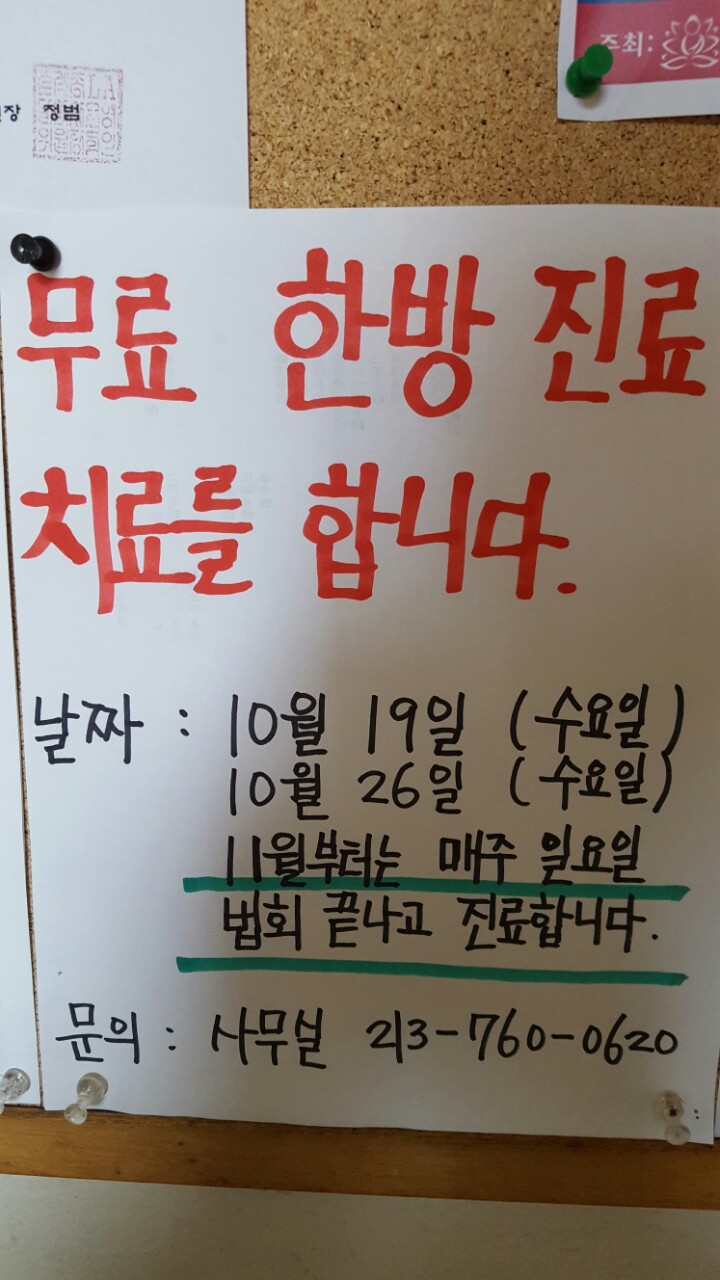 주최:
장 정범
무료 한방 진료
치료를 합니다.
날짜 : 10월 19일 (수요일)
10월 26일 (수요일)
11월부터는 매주 일요일
법회 끝나고 진료합니다.
문의 : 사무실 213-760-0620